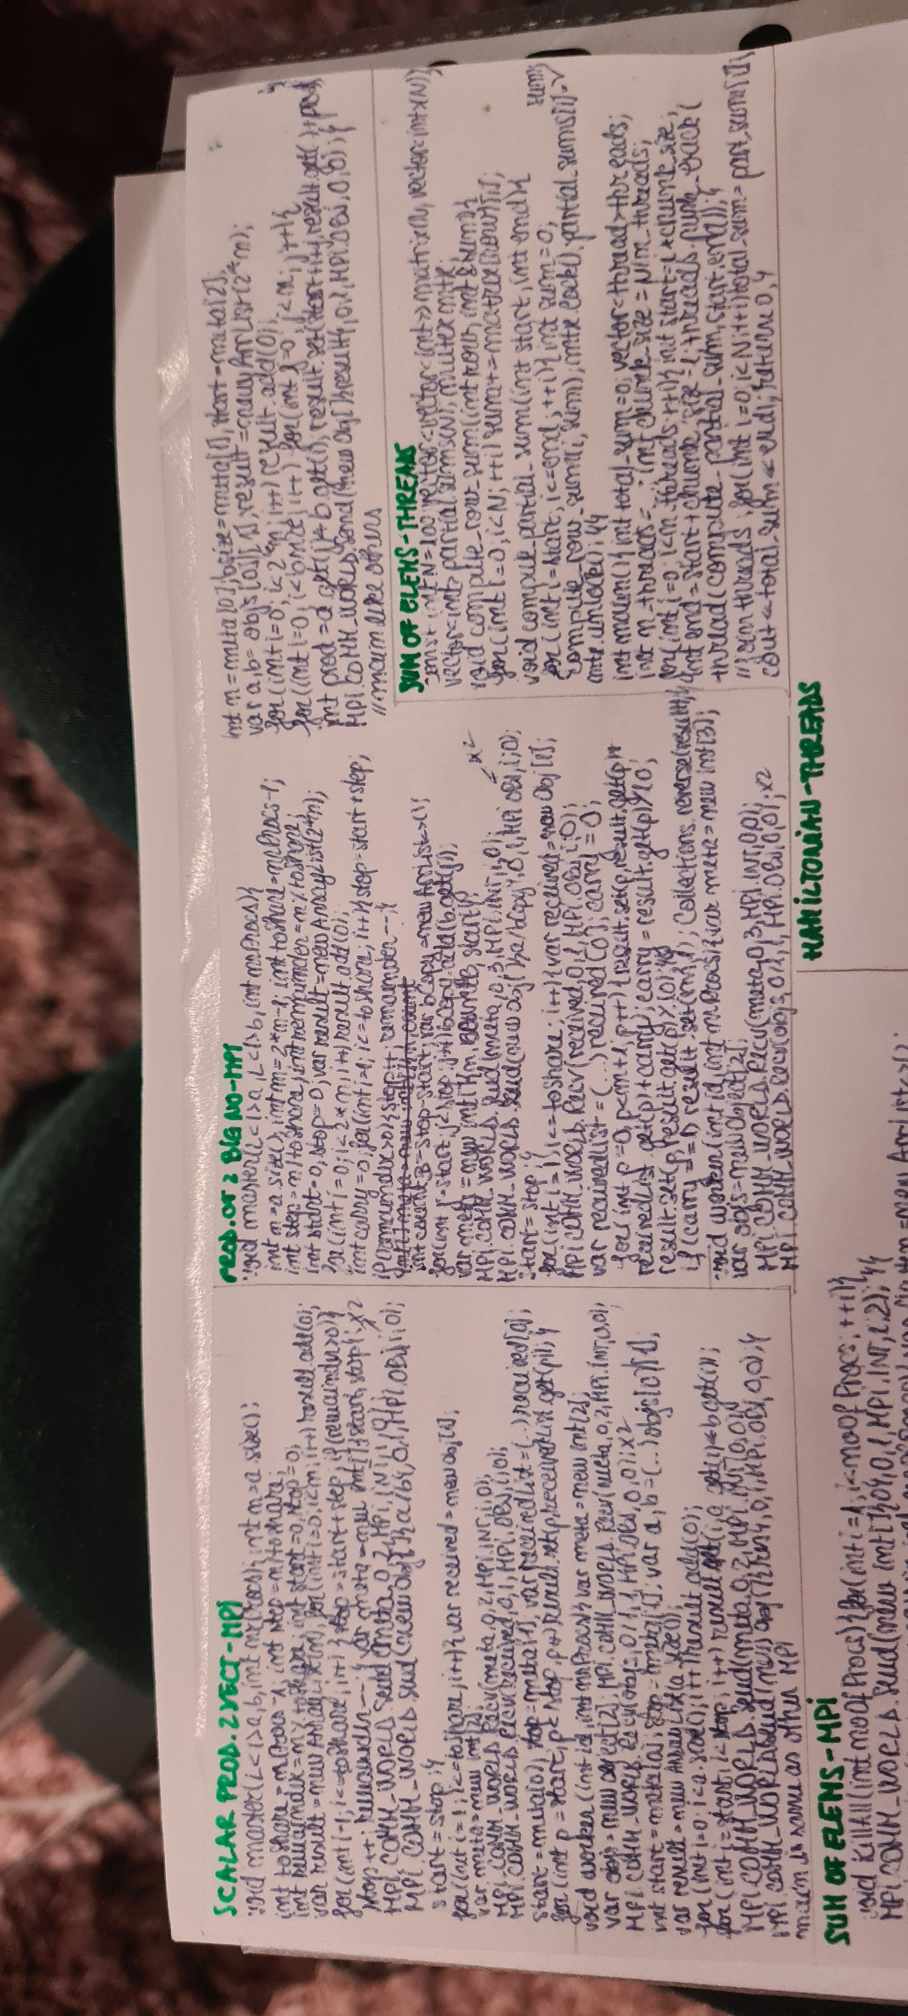 SCALAR PROD. 2 VECT-MPi
void master(L<I>a,b,int nrProcs){int n=a.size();
int toShare=nrProcs-1; int step=n/toShare;
int remainder=n%toShare; int start=0, stop=0;
var result=new ArrayList(n), for(int i=0;i<n;i++) result.add(0);
for(int i=1; i<=toShare; i++){stop=start+step; if(remainder>0){
stop++; remainder--;} var meta=new int[]{start, stop}; x2
MPi.COMM_WORLD.Send(meta,0,2,MPi.INT,i,0);
MPi.COMM_WORLD.Send(new Obj[]{a/b},0,1,MPi.OBJ,i,0);
start=stop;}
for(int i=1;i<=toShare;i++){var received=new obj[1];
var meta=new int[2];
MPi.COMM_WORLD.Recv(meta,0,2,MPi.INT,i,0);
MPi.COMM_WORLD.Recv(received,0,1,MPi.OBJ,i,0);
start=meta[0], stop=meta[1], var receivedList=(..)received[0];
for(int p=start,p<stop,p++) result.set(p,receivedList.get(p));}
void worker(int id,int nrProcs){var meta=new int[2];
var objs=new object[2]; MPi.COMM_WORLD.Recv(meta,0,2,MPi.INT,0,0);
MPi.COMM_WORLD.Recv(objs,0/1,1,MPi.OBJ,0,0);x2
int start=meta[0], stop=meta[1]; var a,b=(..)objs[0][1],
var result=new ArrayList(a.size());
for(int i=0;i<a.size();i++)result.add(0);
for(int i=start; i<stop; i++) result.set(i,a.get(i)*b.get(i));
MPi.COMM_WORLD.Send(meta,0,2,MPi.INT,0,0);
MPi.COMM_WORLD.Send(new Obj[]{res},0,1,MPi.OBJ,0,0);}
main is same as other MPi
PROD. OF 2 BIG NO-MPI
void master(L<I>a,L<I>b,int nrProcs){
int n=a.size(), int m=2*n-1; int toShare=nrProcs-1;
int step=n/toShare; int remainder=n%toShare;
int start=0, stop=0; var result=new ArrayList(2*n);
for(int i=0;i<2*n,i++)result.add(0);
int carry=0; for(int i=1; i<=toShare; i++){stop=start+step,
if(remainder>0){stop++; remainder--;}
int[] meta=new int[]{n,count
int countB=stop-start; var bCopy=new ArrList<>();
for(int j=start; j<stop; j++)bCopy.add(b.get(j));
var meta=new int[]{n, countB, start};
MPi.COMM_WORLD.Send(meta,0,3,MPi.INT,i,0); x2
MPi.COMM_WORLD.Send(new obj[]{a/bCopy},0,1,MPi.OBJ,i,0);
start=stop;}
for(int i=1;i<=toShare; i++){var received=new Obj[1];
MPi.COMM_WORLD.Recv(received,0,1,MPi.OBJ,i,0);
var receivedList=(...)received[0]; carry=0;
for(int p=0, p<m+1, p++){result.set(p,result.get(p)+
receivedList.get(p)+carry);carry=result.get(p)/10;
result.set(p,result.get(p)%10);}}
if(carry==1) result.set(m,1); Collections.reverse(result);}
void worker(int id,int nrProcs){var meta=new int[3];
var objs=new Object[2];
MPi.COMM_WORLD.Recv(meta,0,3,MPi.INT,0,0);
MPi.COMM_WORLD.Recv(objs,0/1,1,MPi.OBJ,0,0);x2
int n=meta[0], bsize=meta[1], start=meta[2];
var a,b=objs[0][1], result=new ArrList(2*n);
for(int i=0; i<2*n;i++)result.add(0);
for(int i=0; i<bsize;i++) for(int j=0, j<n; j++){
int prod=a.get(j)*b.get(i), result.set(start+i+j,result.get()+prod)
MPi.COMM_WORLD.Send(new Obj[]{result},0,1,MPi.OBJ,0,0);}
//main like others
SUM OF ELEMS-THREADS
const int N=100, vector<vector<int>>matrix(N, vector<int>(N));
vector<int>partial_sums(N), mutex mtx;
void compute_row_sum(int row, int &sum){
for(int i=0,i<N;++i) sum+=matrix[row][i];}
void compute_partial_sum(int start, int end){
for(int i=start, i<=end, ++i){int sum=0; sum;
compute_row_sum(i, sum), mtx.lock(), partial_sums[i]=
mtx.unlock();}}
int main(){int total_sum=0; vector<thread>threads;
int n_threads=..; int chunk_size=N/n_threads;
for(int i=0; i<n_threads;++i){int start=i*chunk_size,
int end=start+chunk_size-1; threads.push_back(
thread(compute_partial_sum,start,end));}
//join threads, for(int i=0;i<N;i++)total_sum=part_sums[i],
cout<<total_sum<<endl; return 0;}
SUM OF ELEMS-MPi
void killAll(int noOfProcs){for(int i=1, i<noOfProcs; ++i){
MPi.COMM_WORLD.Send(new int[]{0},0,1,MPi.INT,i,2);}}
HAMiLTONiAN-THREADS